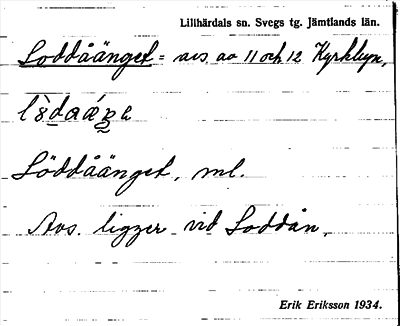 Lillhärdals sn. Svegs tg. Jämtlands län.
Loddåänget = avs. av 11 och 12 Kyrkbyn,
Löddåänget, ml.
Avs. ligger vid Loddån.
Erik Eriksson 1934.